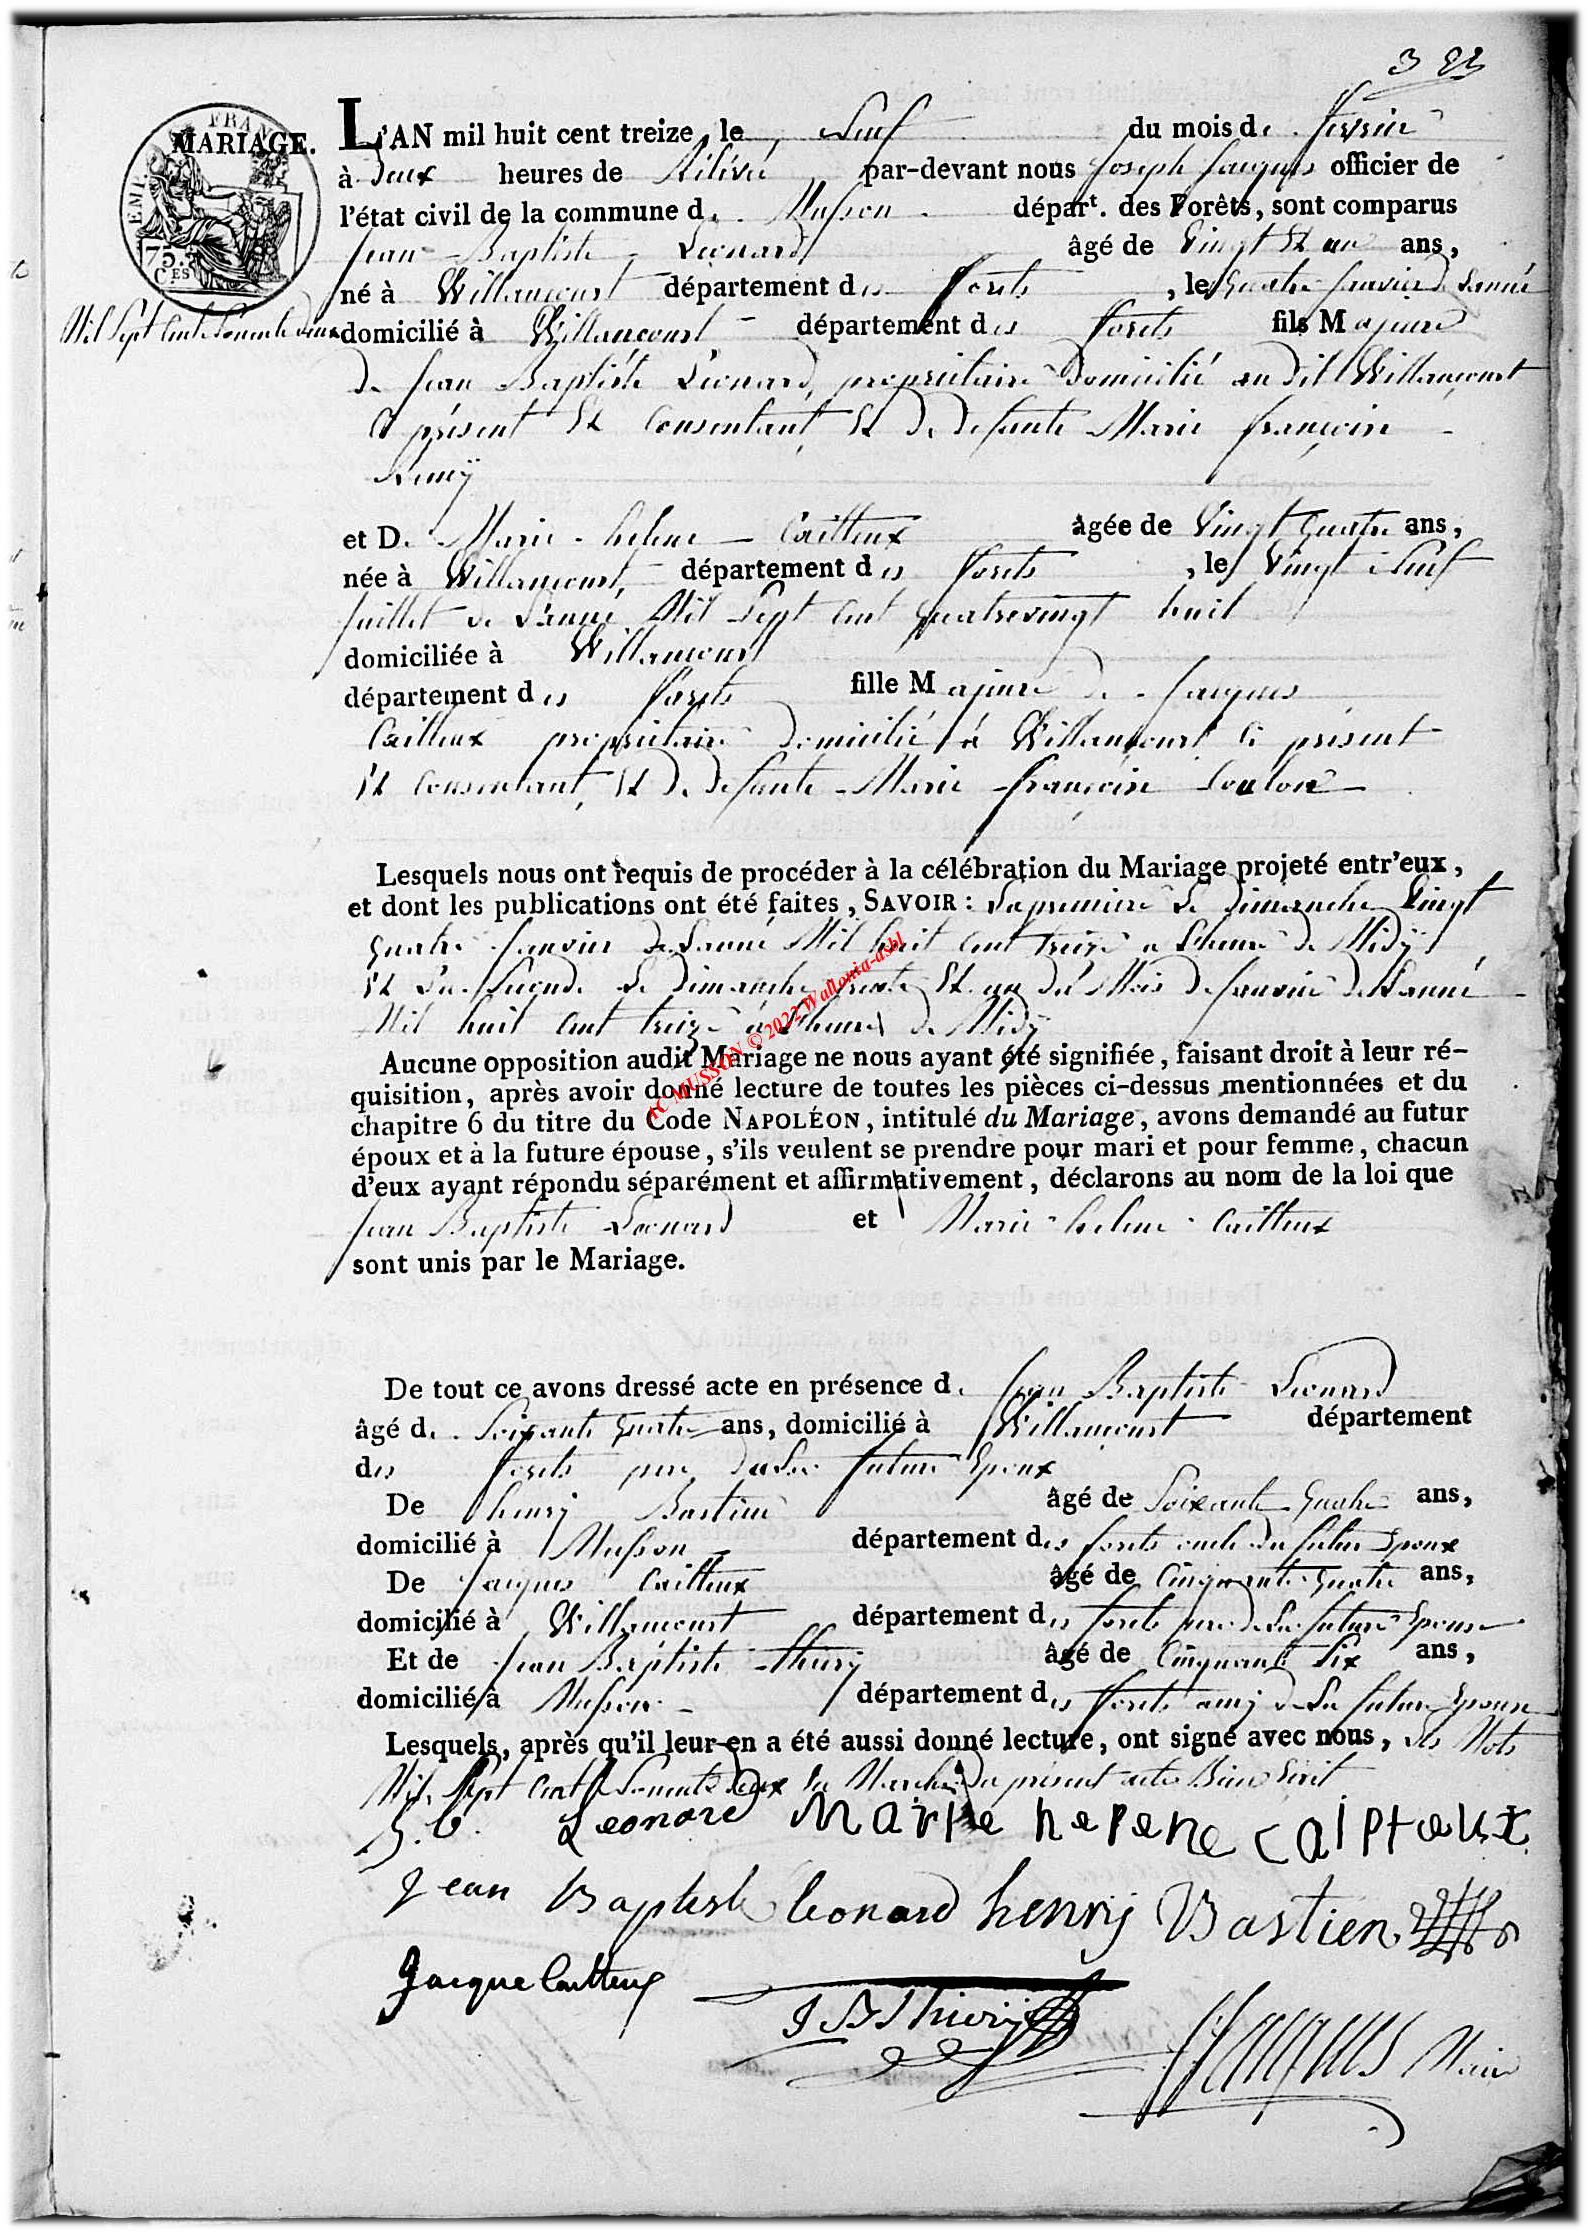 3 23
FRAN
EMP.
75.
CES
MARIAGE.
L'AN mil huit cent treize, le neuf du mois de fevrier
à deux heures de Rélévé par-devant nous Joseph Jacques officier de
l'état civil de la commune de Musson départ. des Forêts, sont comparus
Jean Baptiste Léonard âgé de Vingt Et un ans,
né à Willancourt département des forets, le quatre janvier de Lanné
Mil Sept Cent
domicilié à Willancourt département des forets fils Majeure
de Jean Baptiste Léonard, propriétaire domicilié au dit Willancourt
Ci présent Et Consentant, Et de defunte Marie françoise
Remÿ
et D. Marie helene Cailteux âgée de Vingt quatre ans,
née à Willancourt, département des forets, le Vingt neuf
juillet de Lanné Mil Sept Cent quatrevingt huit
domiciliée à Willancourt
département des forets fille Majeure de Jacques
Cailteux propriétaire domicilié à Willancourt Ci présent
Et Consentant, Et de defunte Marie françoise
Lesquels nous ont requis de procéder à la célébration du Mariage projeté entr'eux,
et dont les publications ont été faites, SAVOIR: La premiere Le dimanche Vingt
quatre janvier de Lanné Mil huit Cent treize a Lheure de Midÿ
Et La seconde Le dimanche trente Et un du Mois de janvier de Lanné
Mil huit Cent treize à Lheure de Midÿ
Aucune opposition audit Mariage ne nous ayant été signifiée, faisant droit à leur ré-
quisition, après avoir donné lecture de toutes les pièces ci-dessus mentionnées et du
chapitre 6 du titre du Code NAPOLÉON, intitulé du Mariage, avons demandé au futur
époux et à la future épouse, s'ils veulent se prendre pour mari et pour femme, chacun
d'eux ayant répondu séparément et affirmativement, déclarons au nom de la loi que
Jean Baptiste Léonard et Marie helene Cailteux
sont unis par le Mariage.
AC MUSSON © 2022 Wallonia-asbl
De tout ce avons dressé acte en présence de Jean Baptiste Léonard
âgé de Soixante quatre ans, domicilié à Willancourt département
des forets pere futur Epoux
De henry Bastien âgé de Soixante quatre ans,
domicilié à Musson département des forets oncle du futur Epoux
De Jacques Cailteux âgé de Cinquante quatre ans,
domicilié à Willancourt département des forets pere de La future Epouse
Et de Jean Baptiste Thiery âgé de Cinquante Six ans,
domicilié à Musson département des forets amy de La future Epouse
Lesquels, après qu'il leur en a été aussi donné lecture, ont signé avec nous, Les Mots
Mil Sept Cent du présent acte Bien Ecrit
J. b. Leonard Marie helene cailteux
Jean Baptiste leonard henrij Bastien
Jacque Cailteux
J B Thierij
J Jacques Maire